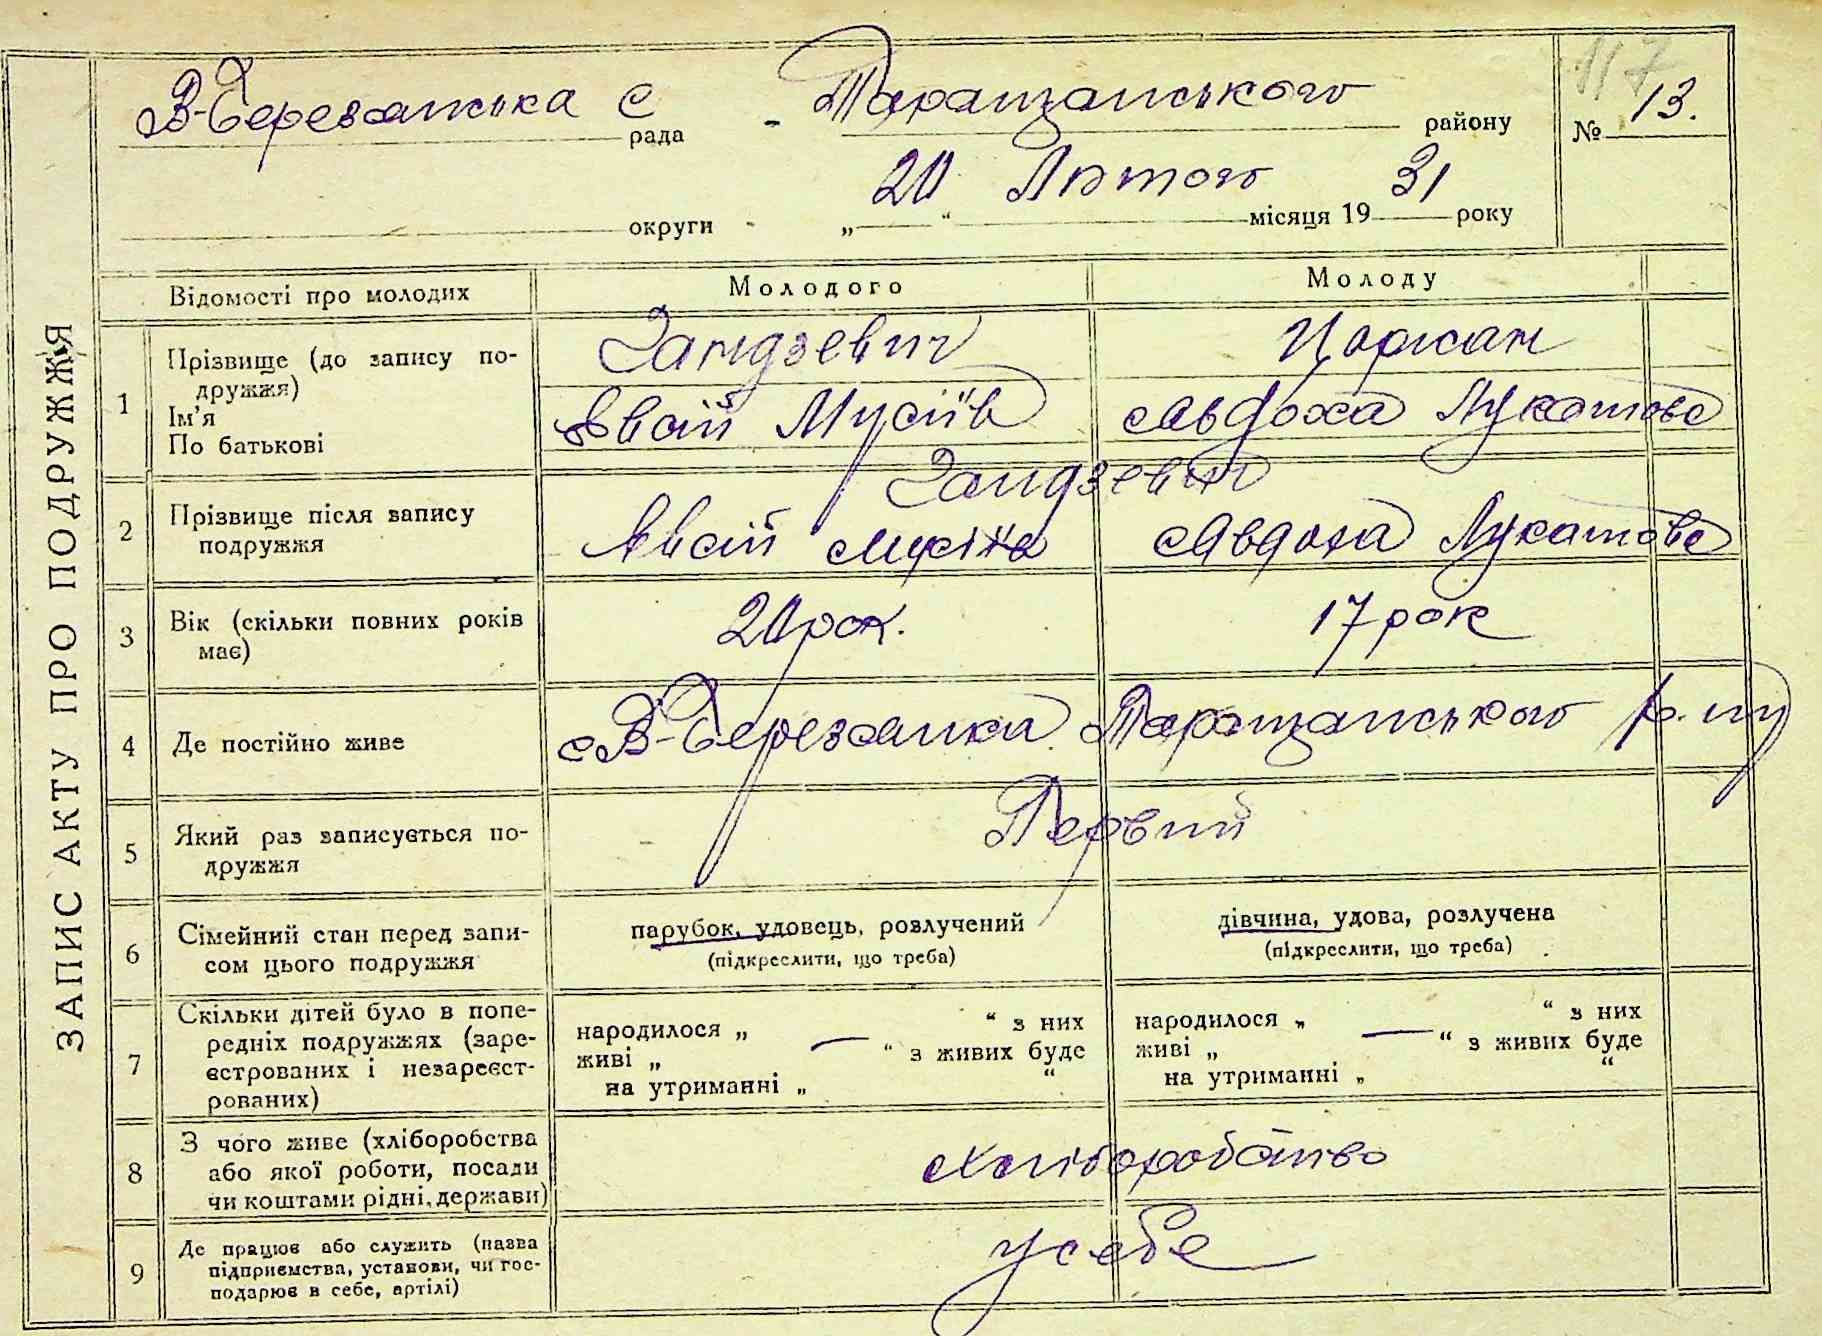 ЗАПИС АКТУ ПРО ПОДРУЖЖЯ
117
В-Березанська с рада - Таращанського району № 13.
округи „20“ Лютого місяця 1931 року
Відомості про молодих Молодого Молоду
1 Прізвище (до запису по-
дружжя)
Ім'я
По батькові
Гандзевич Царжан
Явсій Мусіїв Явдоха Лукатова
Гандзевич
2 Прізвище після запису
подружжя
Явсій Мусіїв Явдоха Лукатова
3 Вік (скільки повних років
має)
20 рок. 17 рок
4 Де постійно живе
с В-Березанка Таращанського р-ну
5 Який раз записується по-
дружжя
Первий
6 Сімейний стан перед запи-
сом цього подружжя
парубок, удовець, розлучений
(підкреслити, що треба)
дівчина, удова, розлучена
(підкреслити, що треба)
7 Скільки дітей було в попе-
редніх подружжях (заре-
єстрованих і незареєст-
рованих)
народилося „ — “ з них
живі „ “ з живих буде
на утриманні „ “
народилося „ — “ з них
живі „ “ з живих буде
на утриманні „ “
8 З чого живе (хліборобства
або якої роботи, посади
чи коштами рідні, держави)
Хліборобство
9 Де працює або служить (назва
підприємства, установи, чи гос-
подарює в себе, артілі)
у себе